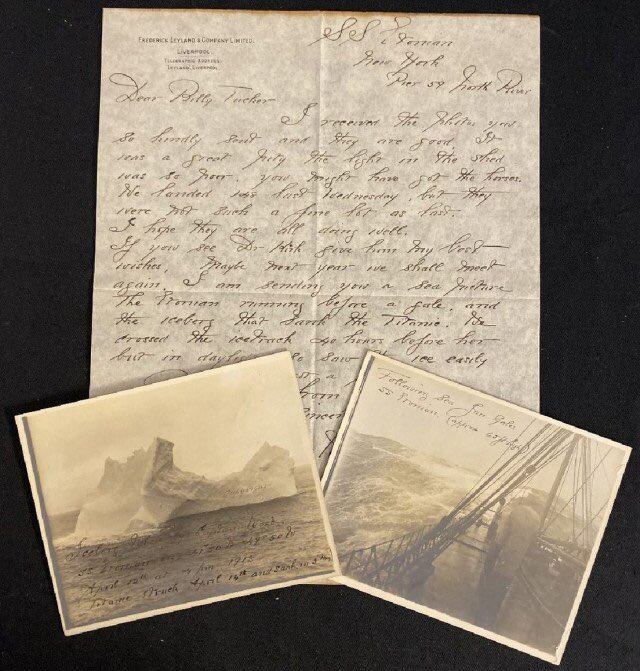 FREDERICK LEYLAND & COMPANY LIMITED.
LIVERPOOL.
TELEGRAPHIC ADDRESS:
LEYLAND, LIVERPOOL
SS Etonian
New York
Pier 59 North River
Dear Billy Tucker
I received the photos you
so kindly sent and they are good. It
was a great pity the light in the shed
was so poor, you might have got the horses.
We landed last Wednesday, but they
were not such a fine lot as last.
I hope they are all doing well.
If you see Dr Kirk give him my best
wishes, Maybe next year we shall meet
again. I am sending you a sea picture
The Etonian running before a gale, and
the iceberg that sank the Titanic. We
crossed the icetrack 40 hours before her
but in saw ice easily
from
Iceberg
SS Etonian
April 12th at 4 pm 1912
Titanic struck April 14th and sank in
Following Sea Jan Gales
SS Etonian